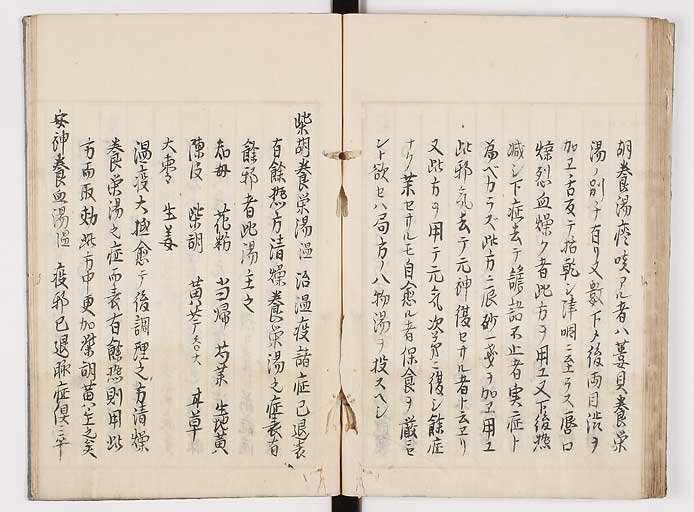 胡養湯痰咳アル者ハ蔞貝養栄
湯ノ別チ有リ又数下タ後両目渋ヲ
加エ舌反テ枯乾シ津咽ニ至ラス唇口
燥烈血燥ク者此方ヲ用エ又下後熱
減シ下症去テ譫語不止者実症ト
為ベカラズ此方ニ辰砂一戔ヲ加エ用エ
此邪気去テ元神復セサル者ト云エリ
又此方ヲ用テ元気次第ニ復シ餘症
ナク薬セサルモ自愈ル者保食ヲ厳ニ
シト欲セハ局方ノ八物湯ヲ投スヘシ
柴胡養栄湯温 治温疫諸症已退表
有餘熱方清燥養栄湯之症表有
餘邪者此湯主之
知母 花粉 当帰 芍薬 生地黄
陳皮 柴胡 黄芩 甘草
大棗 生姜
温疫大抵愈テ後調理之方清燥
養栄湯之症而表有餘熱則用此
方而取効此方中更加柴胡黄芩主之矣
安神養血湯温 疫邪已退脈症倶平